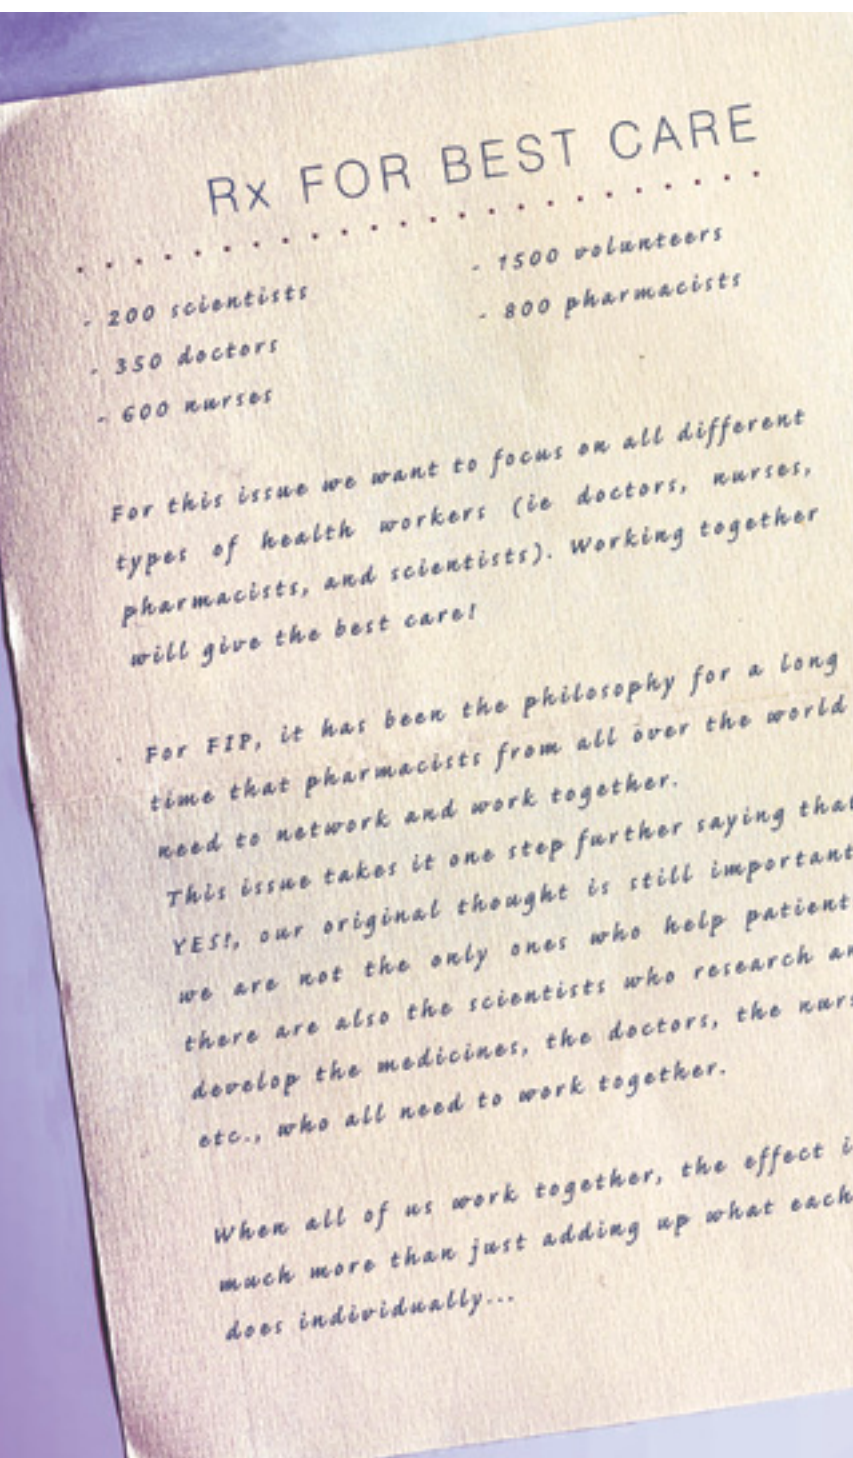 Rx FOR BEST CARE
- 200 scientists
- 350 doctors
- 600 nurses
- 1500 volunteers
- 800 pharmacists
For this issue we want to focus on all different
types of health workers (ie doctors, nurses,
pharmacists, and scientists). Working together
will give the best care!
For FIP, it has been the philosophy for a long
time that pharmacists from all over the world
need to network and work together.
This issue takes it one step further saying that
YES!, our original thought is still important
we are not the only ones who help patient
there are also the scientists who research an
develop the medicines, the doctors, the nurs
etc., who all need to work together.
When all of us work together, the effect i
much more than just adding up what each
does individually...